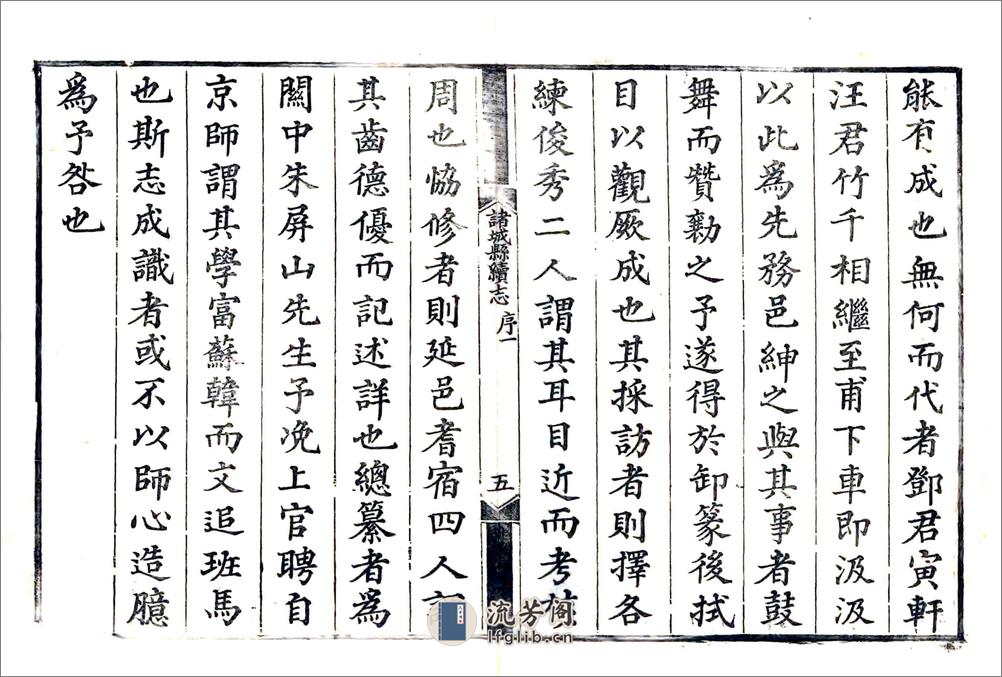 能有成也無何而代者鄧君寅軒
汪君竹千相繼至甫下車即汲汲
以此為先務邑紳之與其事者鼓
舞而贊勷之予遂得於卸篆後拭
目以觀厥成也其採訪者則擇各
練俊秀二人謂其耳目近而考
諸城縣續志 序一
五
周也恊修者則延邑耆宿四人
其齒德優而記述詳也總纂者為
關中朱屏山先生予浼上官聘自
京師謂其學富蘇韓而文追班馬
也斯志成識者或不以師心造臆
為予咎也
流芳阁
lfglib.cn